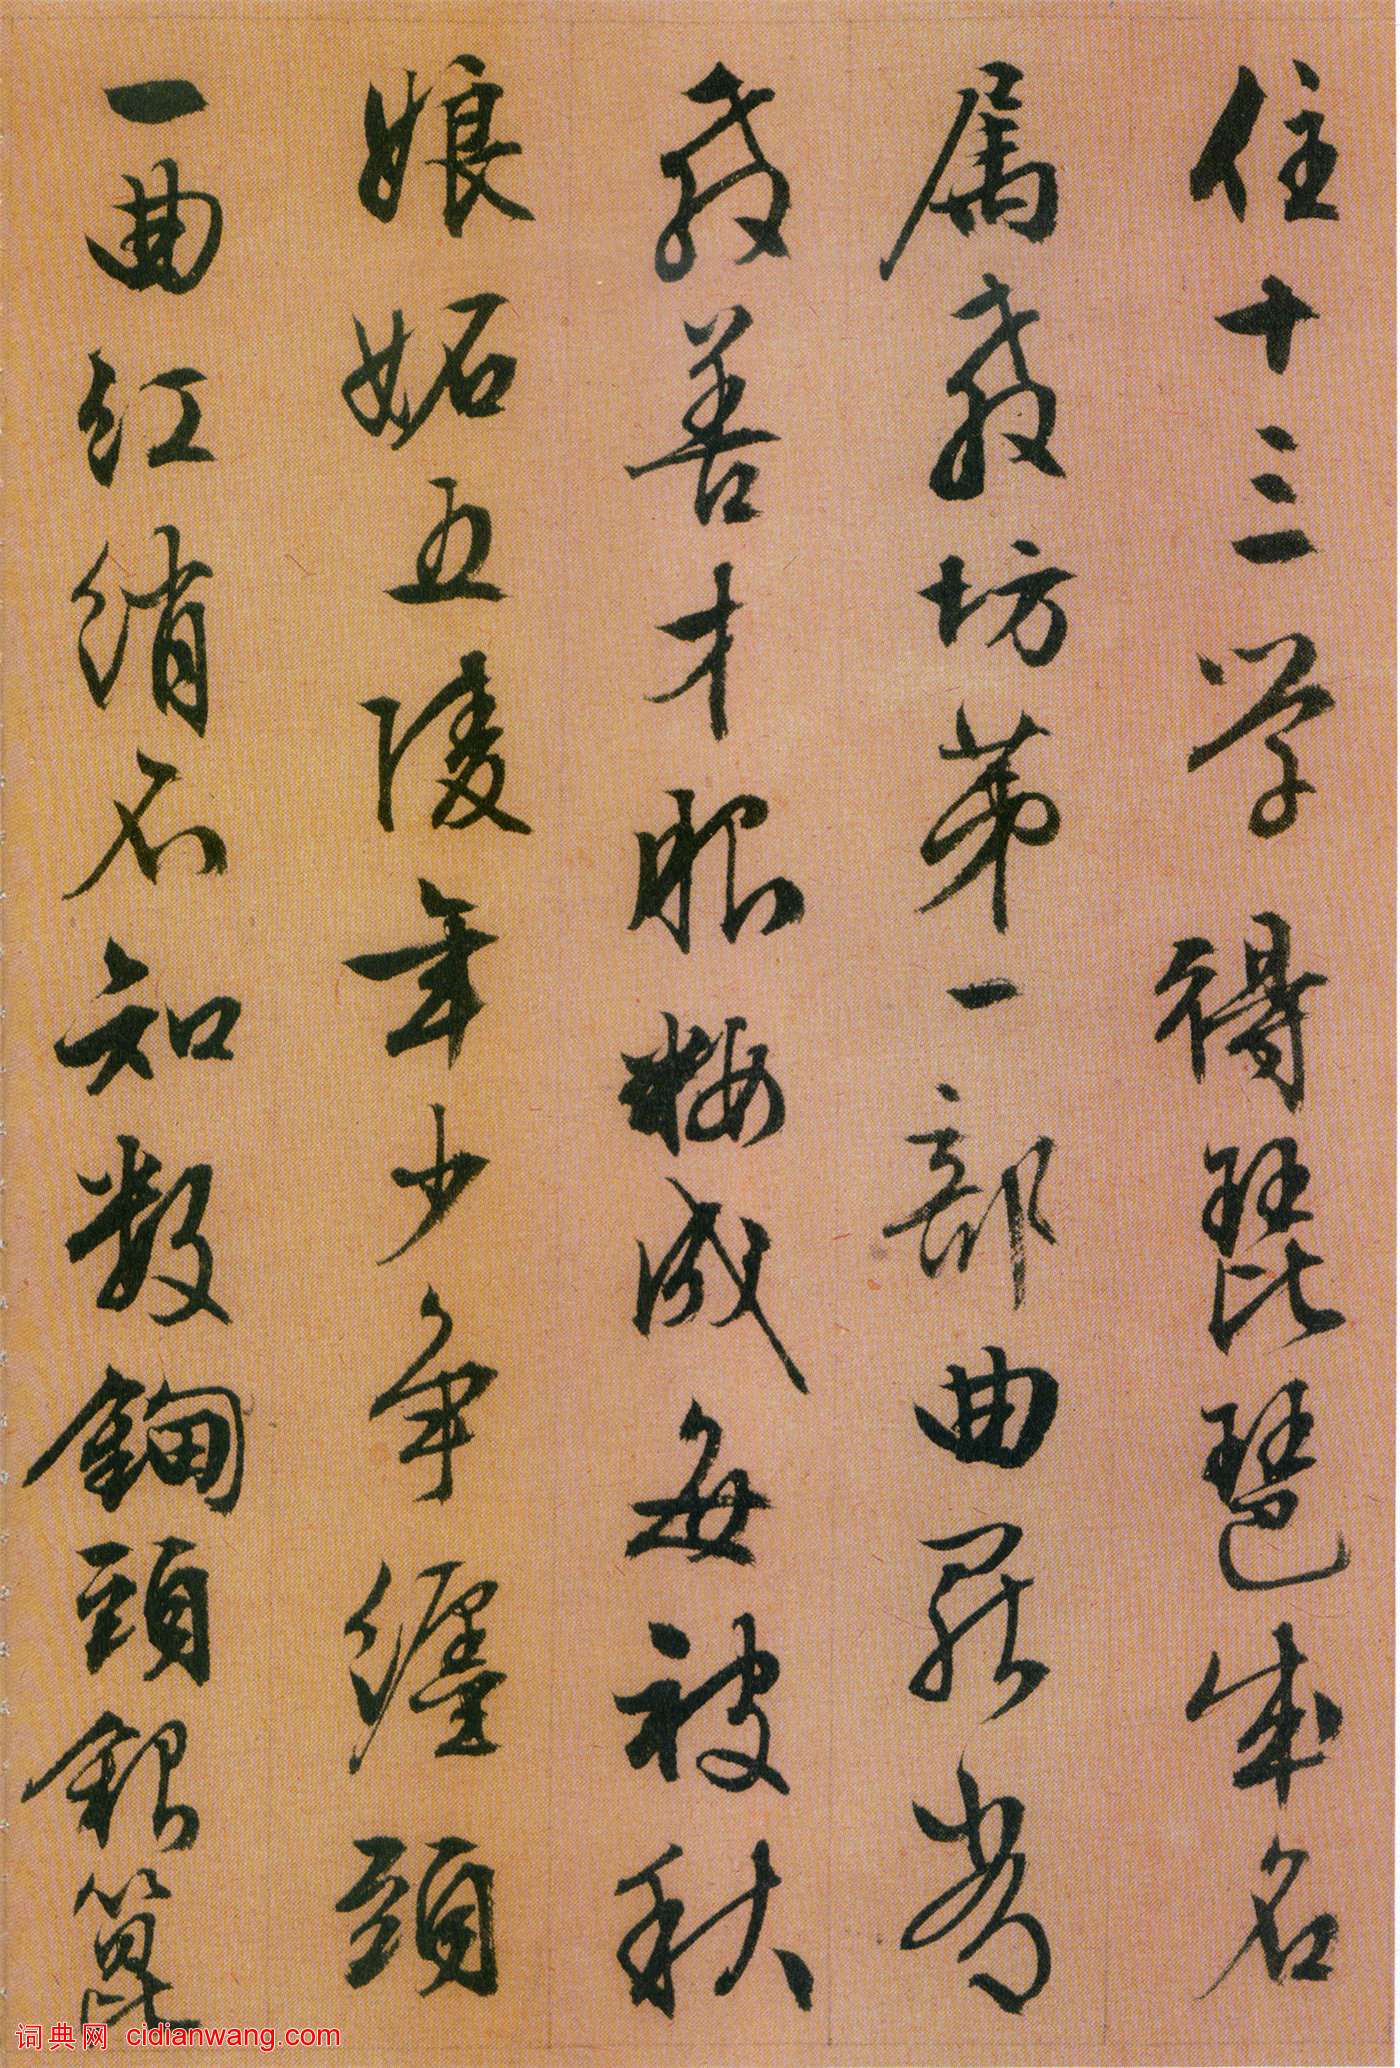 住十三学得琵琶成名
属教坊第一部曲罷常
教善才服粧成每被秋
娘妬五陵年少争纏頭
一曲紅綃不知数鈿頭銀篦
词典网 cidianwang.com